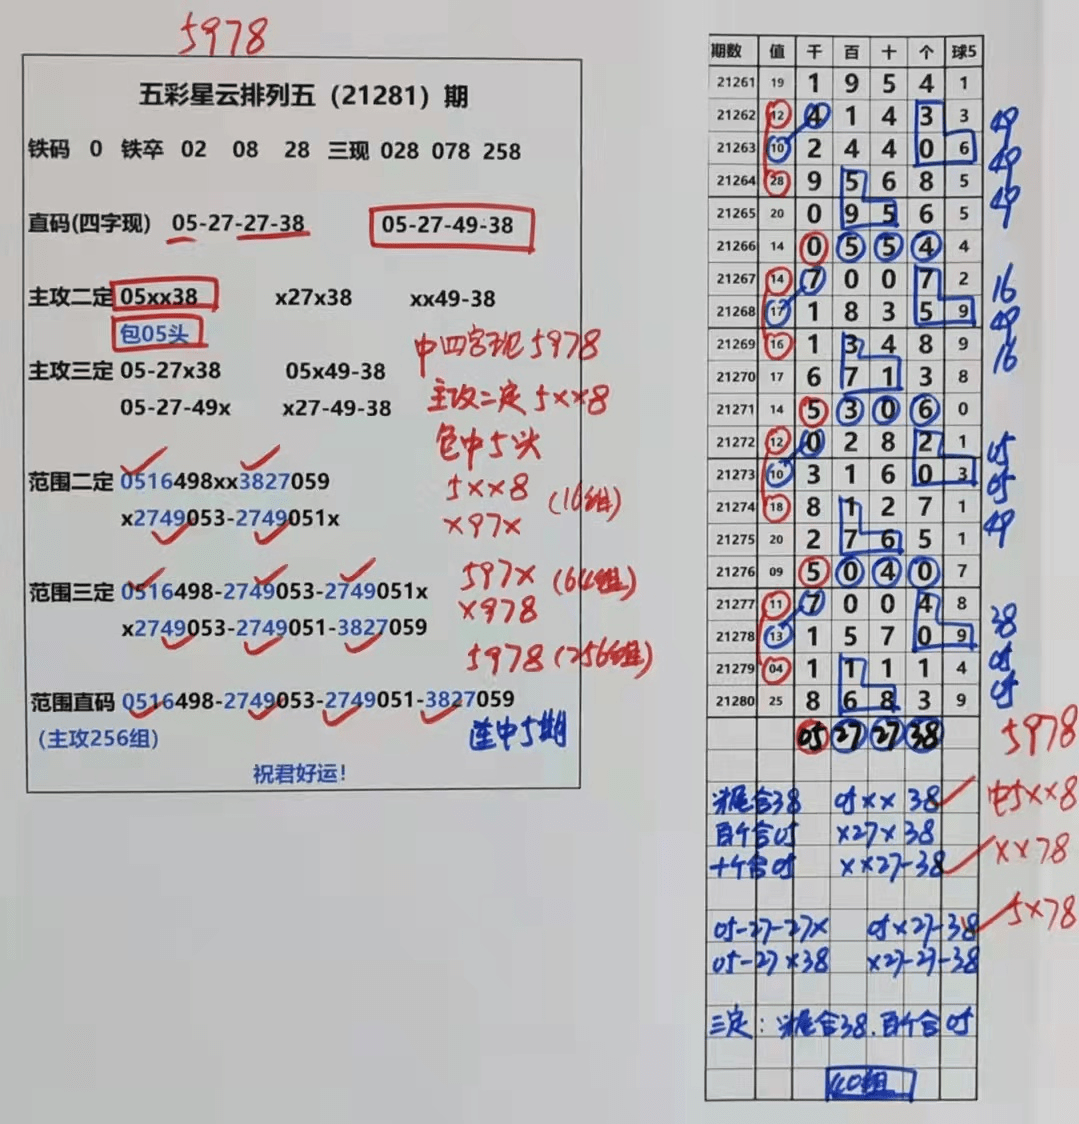 5978
五彩星云排列五（21281）期
铁码 0 铁卒 02 08 28 三现 028 078 258
直码(四字现) 05-27-27-38 05-27-49-38
主攻二定 05xx38 x27x38 xx49-38
包05头
中四字现5978
主攻三定 05-27x38 05x49-38
主攻二定5××8
05-27-49x x27-49-38
包中5头
范围二定 0516498xx3827059
5××8 (16组)
x2749053-2749051x
×97×
范围三定 0516498-2749053-2749051x
597× (64组)
x2749053-2749051-3827059
×978
5978 (256组)
范围直码 0516498-2749053-2749051-3827059
(主攻256组)
连中5期
祝君好运！
期数 值 千 百 十 个 球5
21261 19 1 9 5 4 1
21262 12 4 1 4 3 3 49
21263 10 2 4 4 0 6 49
21264 28 9 5 6 8 5 49
21265 20 0 9 5 6 5
21266 14 0 5 5 4 4
21267 14 7 0 0 7 2 16
21268 17 1 8 3 5 9 49
21269 16 1 3 4 8 9 16
21270 17 6 7 1 3 8
21271 14 5 3 0 6 0
21272 12 0 2 8 2 1 05
21273 10 3 1 6 0 3 05
21274 18 8 1 2 7 1 49
21275 20 2 7 6 5 1
21276 09 5 0 4 0 7
21277 11 7 0 0 4 8 38
21278 13 1 5 7 0 9 05
21279 04 1 1 1 1 4 05
21280 25 8 6 8 3 9
05 27 27 38 5978
尾合38 05×× 38 中5××8
百个合05 ×27×38
十个合05 ××27-38 ××78
05-27-27× 05×27-38 5×78
05-27×38 ×27-27-38
三定：尾合38.百个合05
40组